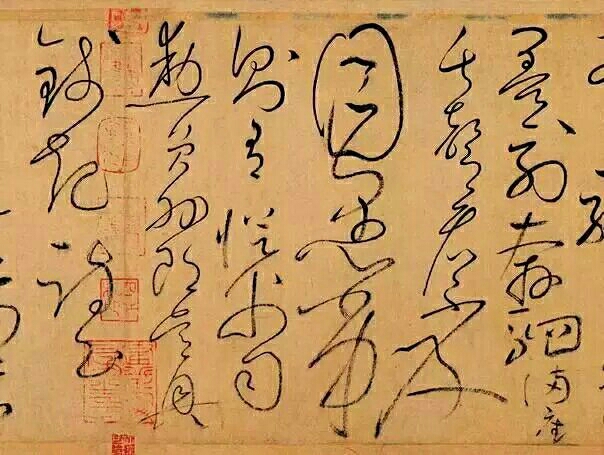 墨列奔駟滿座
失聲看不及
目愚劣
則有從父司
勳員外郎吳興
錢起詩云